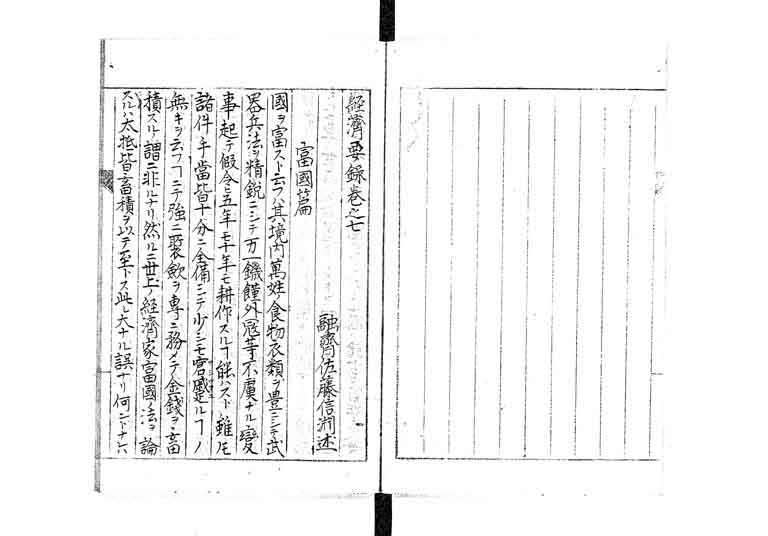 経濟要録巻之七
融齋佐藤信淵述
富國篇
國ヲ富スト云フハ其境内萬姓ノ食物衣類ヲ豊ニシテ武
器兵法ヲ精鋭ニシテ万一饑饉外冦等不虞ナル変
事起テ假令ヒ五年モ十年モ耕作スルヿ能ハスト雖モ
諸件手當皆十分ニ全備シテ少シモ窮蹙スルヿノ
無キヲ云フヿニテ強ニ聚歛ヲ専ニ務メテ金錢ヲ畜
積スルノ謂ニ非ルナリ然ルニ世上ノ経濟家富國ノ法ヲ論
スルハ太抵皆畜積ヲ以テ至トス此レ大ナル誤ナリ何ントナレハ